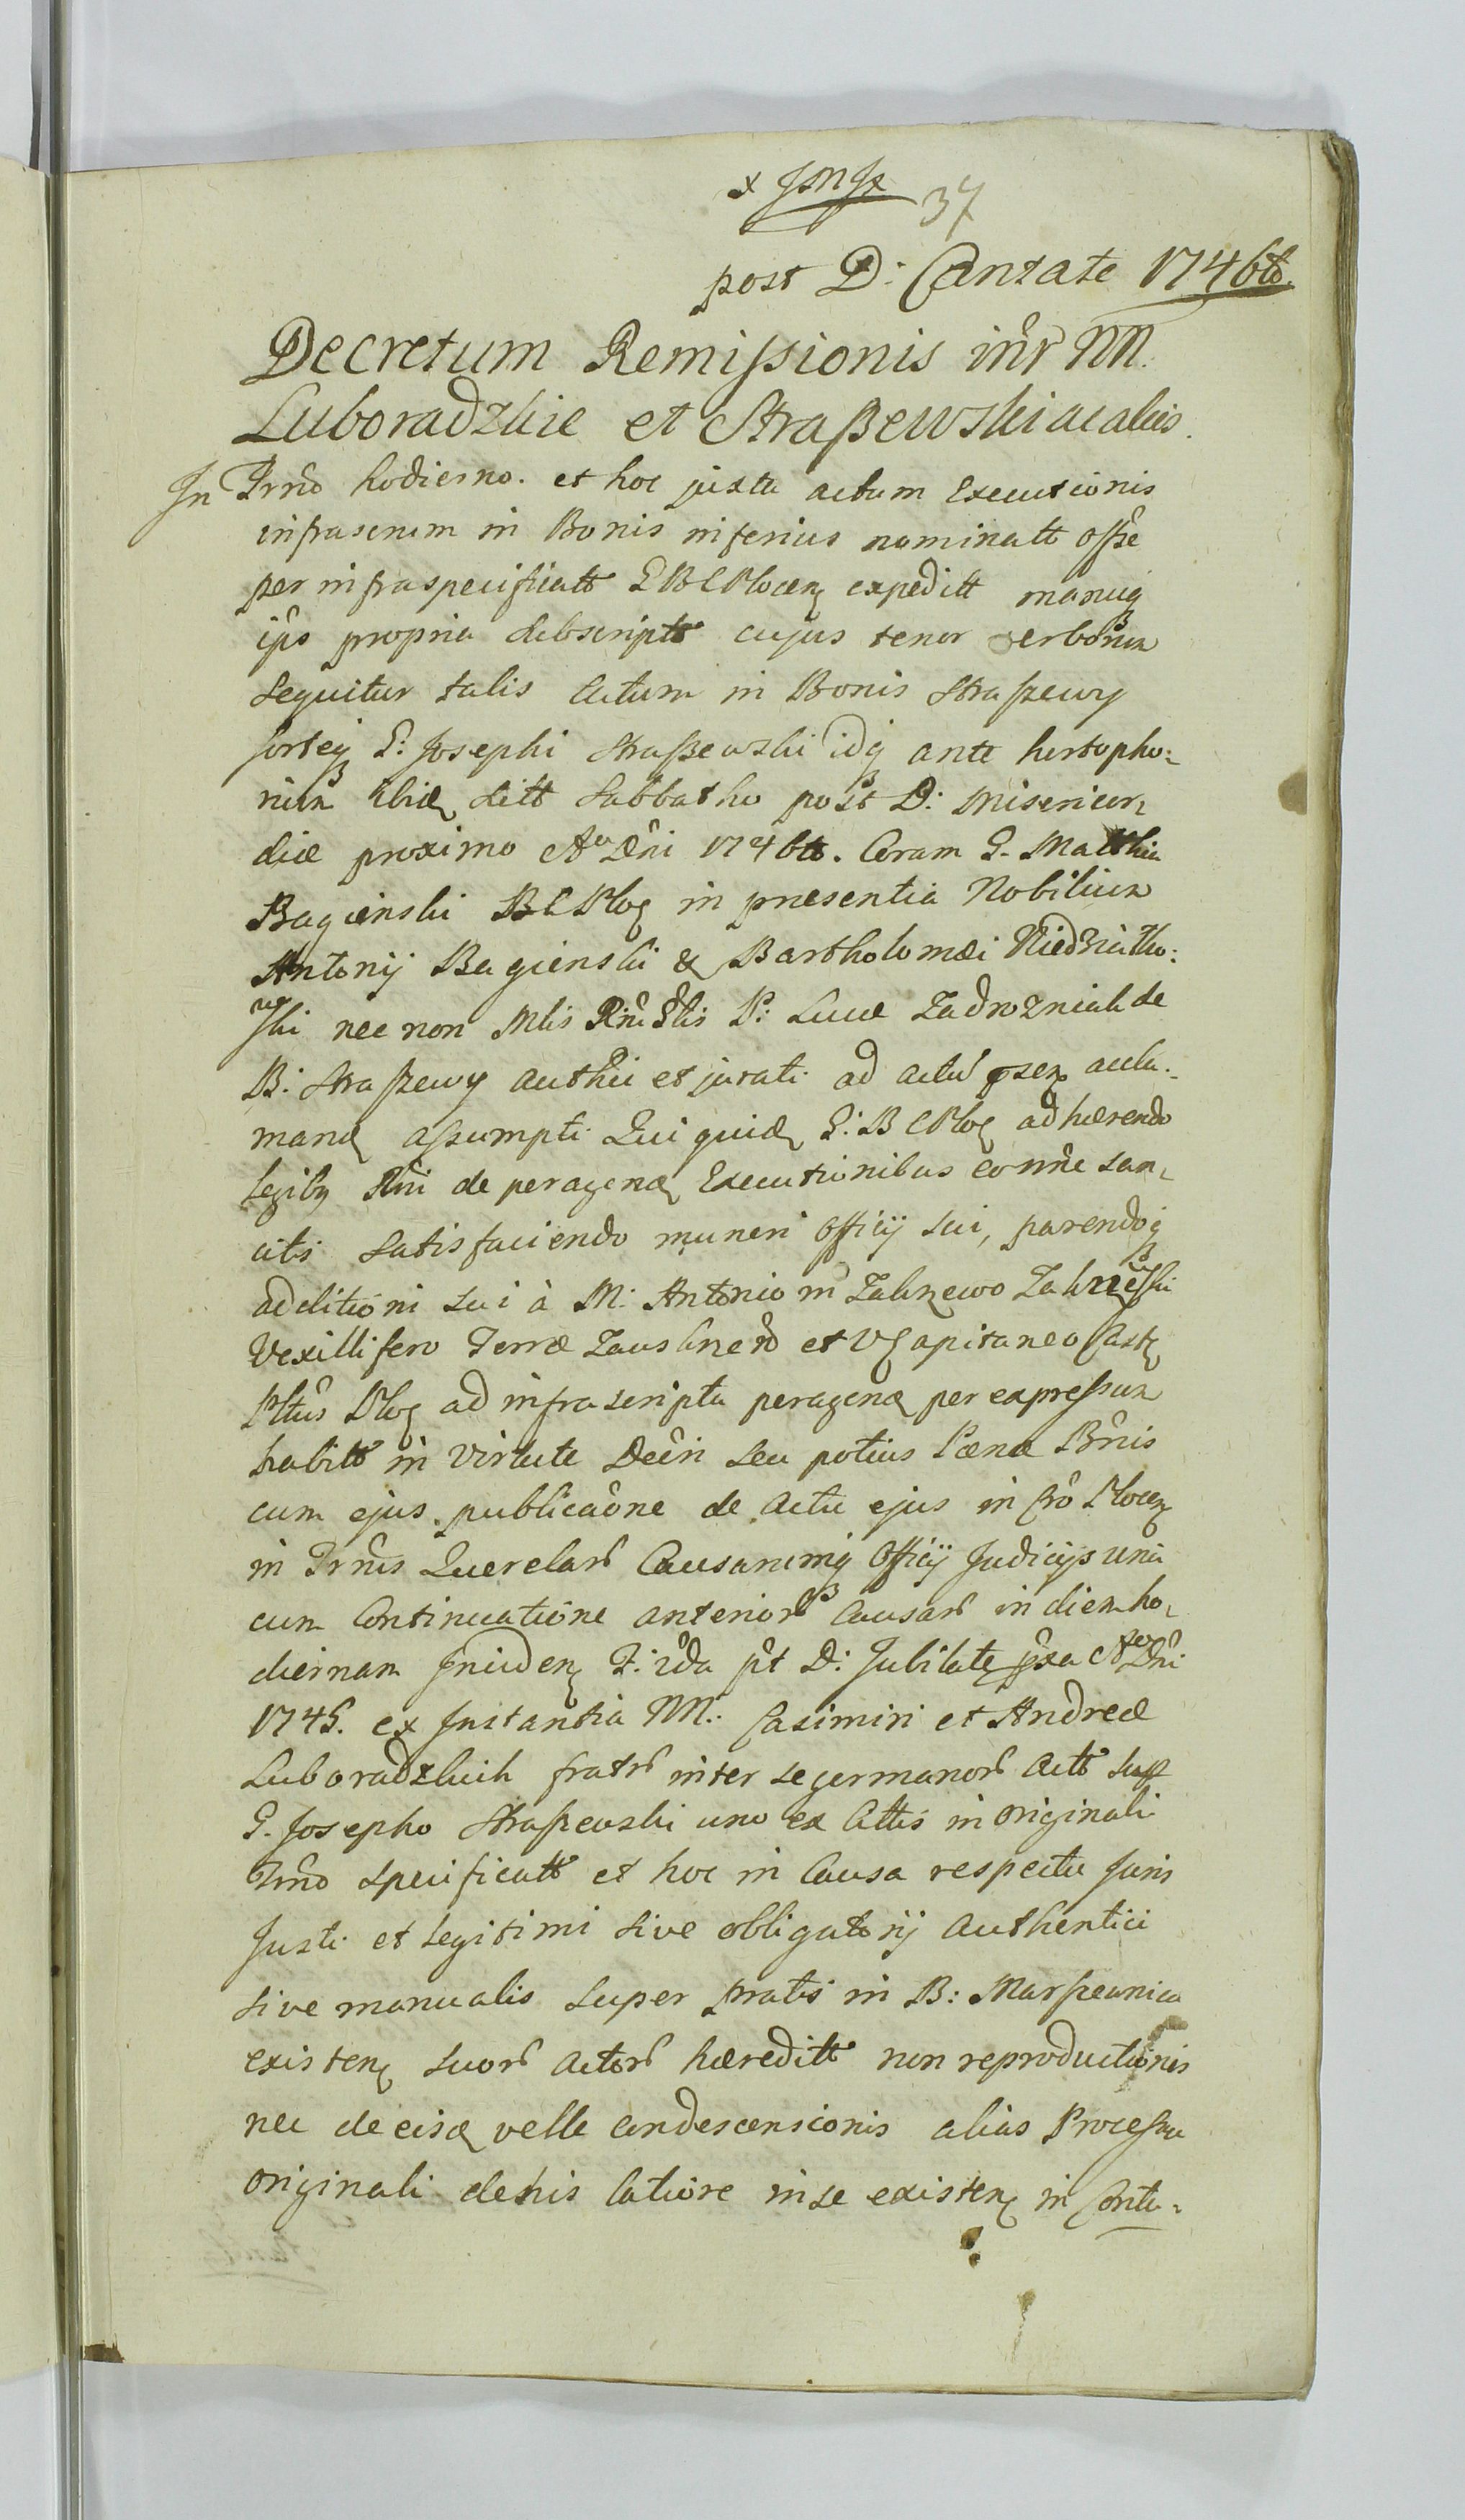 37
post D: Cantate 1746to.
Decretum Remissionis intr NN.
Luboradzkie et Straszewski ac aliis.
In Trno hodierno. et hoc juxta actum Executionis
infrascrum in Bonis inferius nominatt
per infraspecificatt G B C Plocen expeditt manuq
ips propria subscriptt cujus tenor verborum
sequitur talis Actum in Bonis Straszewy
sortey G: Josephi Straszewski idq ante
Sabbatho post D: Misericor
diae proximo Ao Dni 1746to. Coram G. Matthia
Bagienski B C Ploc in praesentia Nobilium
Antonij Bagienski & Bartholomaei
ski nec non P: Lucae Zadrozniak de
B: Straszewy et jurati ad actu psen accla
mand assumpti. Qui quid G: B C Ploc adhaerendo
legibq Rni de peragend Executionibus
citis satisfaciendo muneri Officij sui, parendoq
additioni sui à M: Antonio in Zakrzewo Zakrzewski
Vexillifero Terrae et V Capitaneo Castr
Ploc ad infrascripta peragend per expressum
habitt in virtute Decri seu potius Paenae Bnis
cum ejus publicaone de Actu ejus in Cro Plocen
in Trnis Querelarũ Causarumq Officij Judicijs una
cum Continuatione anteriorũ Causarũ in diem ho
diernam inciden F: 2da pt D: Jubilate pxa Ao Dni
1745. ex Instantia NN: Casimiri et Andreae
Luboradzkich fratrũ inter se germanorũ Actt sup
G. Josepho Straszewski uno ex Cttis in Originali
Trno specificatt et hoc in Causa respectu Juris
Justi et legitimi sive obligatorij Authentici
sive manualis super pratis in B: Marszewnica
existen suorũ Actorũ haereditt non reproductionis
nec de eisd velle condescensionis alias Processu
Originali de his latiore in se existen in Contu-